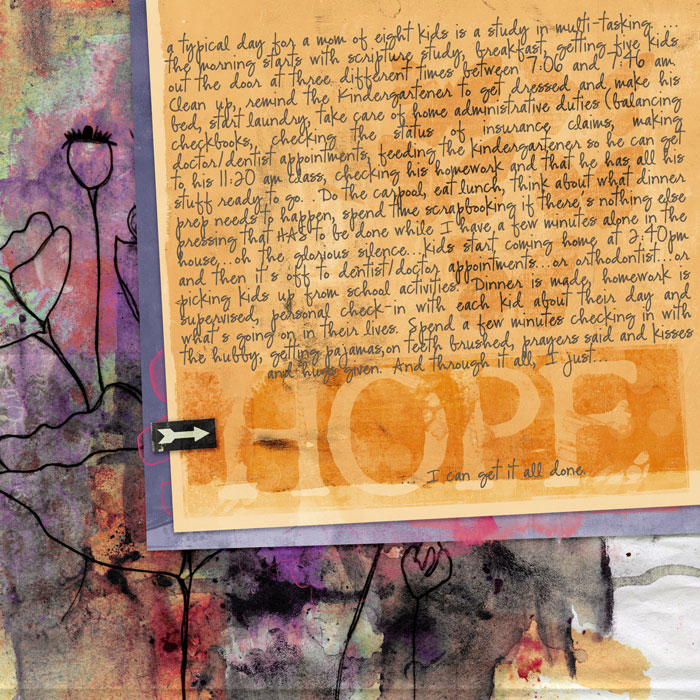 a typical day for a mom of eight kids is a study in multi-tasking ...
the morning starts with scripture study, breakfast, getting five kids
out the door at three different times between 7:06 and 7:46 am
clean up, remind the Kindergartener to get dressed and make his
bed, start laundry, take care of home administrative duties (balancing
checkbooks, checking the status of insurance claims, making
doctor/dentist appointments, feeding the kindergartener so he can get
to his 11:20 am class, checking his homework and that he has all his
stuff ready to go. . Do the carpool, eat lunch, think about what dinner
prep needs to happen, spend time scrapbooking if there's nothing else
pressing that HAS to be done while I have a few minutes alone in the
house...oh the glorious silence...kids start coming home at 2:40pm
and then it's off to dentist/doctor appointments...or orthodontist...or
picking kids up from school activities. Dinner is made, homework is
supervised, personal check-in with each kid about their day and
what's going on in their lives. Spend a few minutes checking in with
the hubby, getting pajamas,on teeth brushed, prayers said and kisses
and hugs given. And through it all, I just...
HOPE
... I can get it all done.